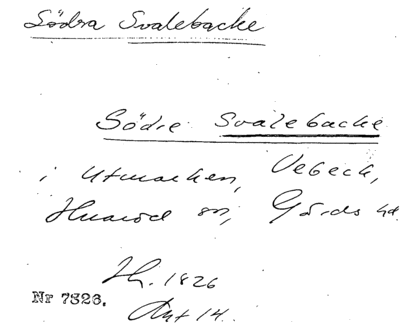 Södra Svalebacke
Södre Svalebacke
i Utmarken, Vebeck,
Huaröd sn, Gärds hd.
Jh. 1826
Nr 7326. Akt 14.